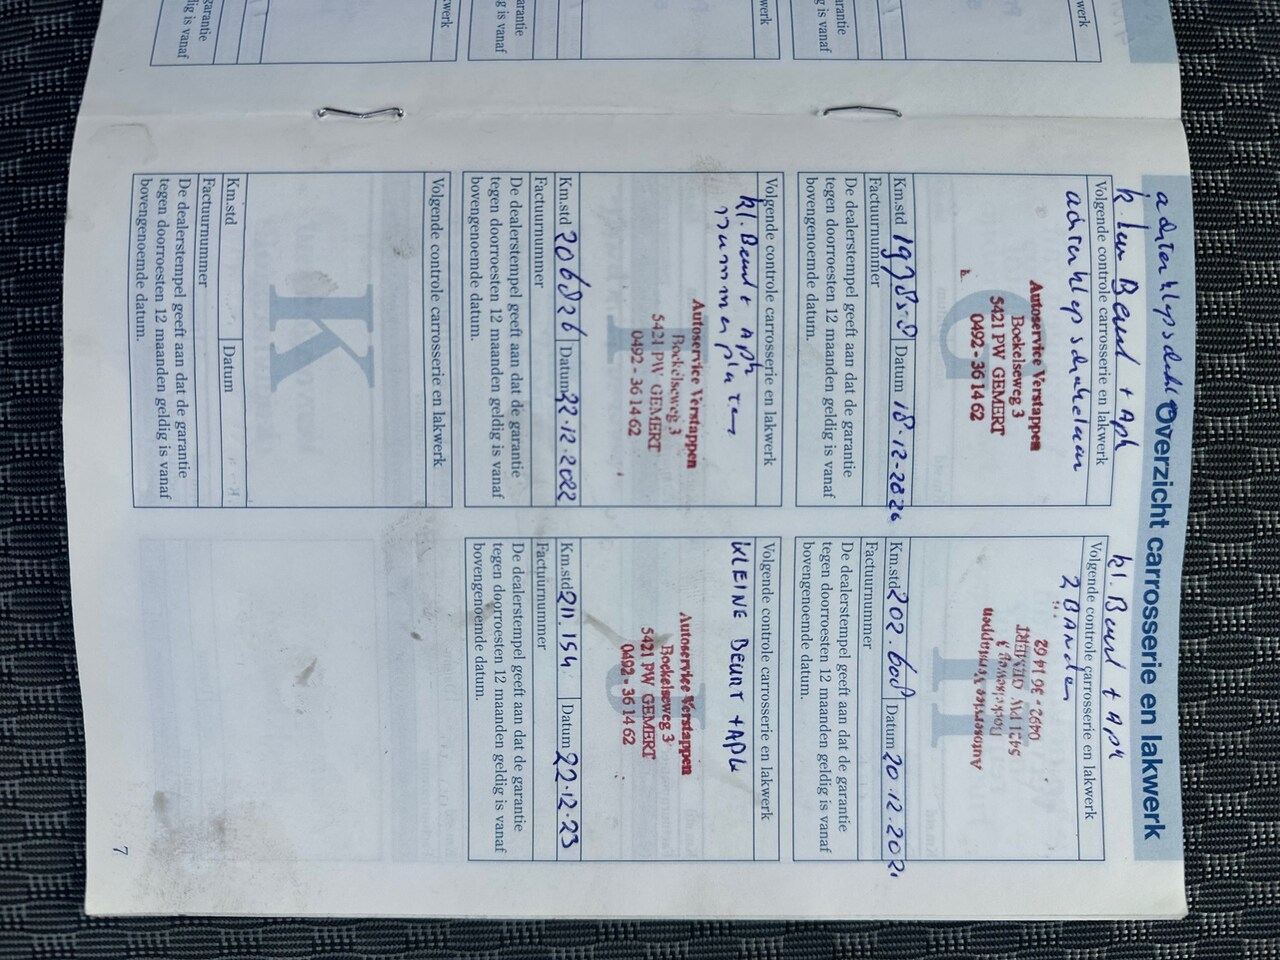 werk
garantie
dig is vanaf
werk
garantie
dig is vanaf
akwerk
arantie
g is vanaf
Overzicht carrosserie en lakwerk
Beurt + Aph
Volgende controle carrosserie en lakwerk
G
Autoservice Verstappen
Boekelseweg 3
5421 PW GEMERT
0492 - 36 14 62
Km.std 197858 Datum 18-12-2020
Factuurnummer
De dealerstempel geeft aan dat de garantie
tegen doorroesten 12 maanden geldig is vanaf
bovengenoemde datum.
kl. Beurt + Aph
Volgende controle carrosserie en lakwerk
2 BAnden
H
Autoservice Verstappen
Boekelseweg 3
5421 PW GEMERT
0492 - 36 14 62
Km.std 202.608 Datum 20.12.2021
Factuurnummer
De dealerstempel geeft aan dat de garantie
tegen doorroesten 12 maanden geldig is vanaf
bovengenoemde datum.
Volgende controle carrosserie en lakwerk
kl. Beurt + APh
nummerplaten
I
Autoservice Verstappen
Boekelseweg 3
5421 PW GEMERT
0492 - 36 14 62
Km.std 206826 Datum 22.12.2022
Factuurnummer
De dealerstempel geeft aan dat de garantie
tegen doorroesten 12 maanden geldig is vanaf
bovengenoemde datum.
Volgende controle carrosserie en lakwerk
KLEINE BEURT + APk
J
Autoservice Verstappen
Boekelseweg 3
5421 PW GEMERT
0492 - 36 14 62
Km.std 211.154 Datum 22.12.23
Factuurnummer
De dealerstempel geeft aan dat de garantie
tegen doorroesten 12 maanden geldig is vanaf
bovengenoemde datum.
Volgende controle carrosserie en lakwerk
K
Km.std Datum
Factuurnummer
De dealerstempel geeft aan dat de garantie
tegen doorroesten 12 maanden geldig is vanaf
bovengenoemde datum.
7